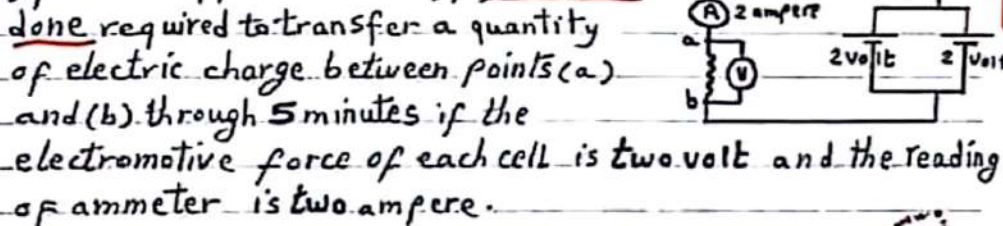 done required to transfer a quantity
of electric charge between points (a)
and (b) through 5 minutes if the
electromotive force of each cell is two volt and the reading
of ammeter is two ampere.
A 2 ampere
a
V
b
2 volt
2 volt